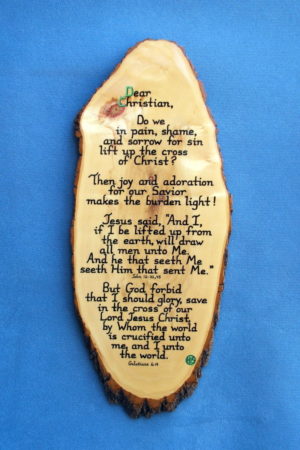 Dear
Christian,
Do we
in pain, shame,
and sorrow for sin
lift up the cross
of Christ?
Then joy and adoration
for our Savior
makes the burden light!
Jesus said, "And I,
if I be lifted up from
the earth, will draw
all men unto Me.
And he that seeth Me
seeth Him that sent Me."
John 12:32,45
But God forbid
that I should glory, save
in the cross of our
Lord Jesus Christ,
by Whom the world
is crucified unto
me, and I unto
the world.
Galatians 6:14